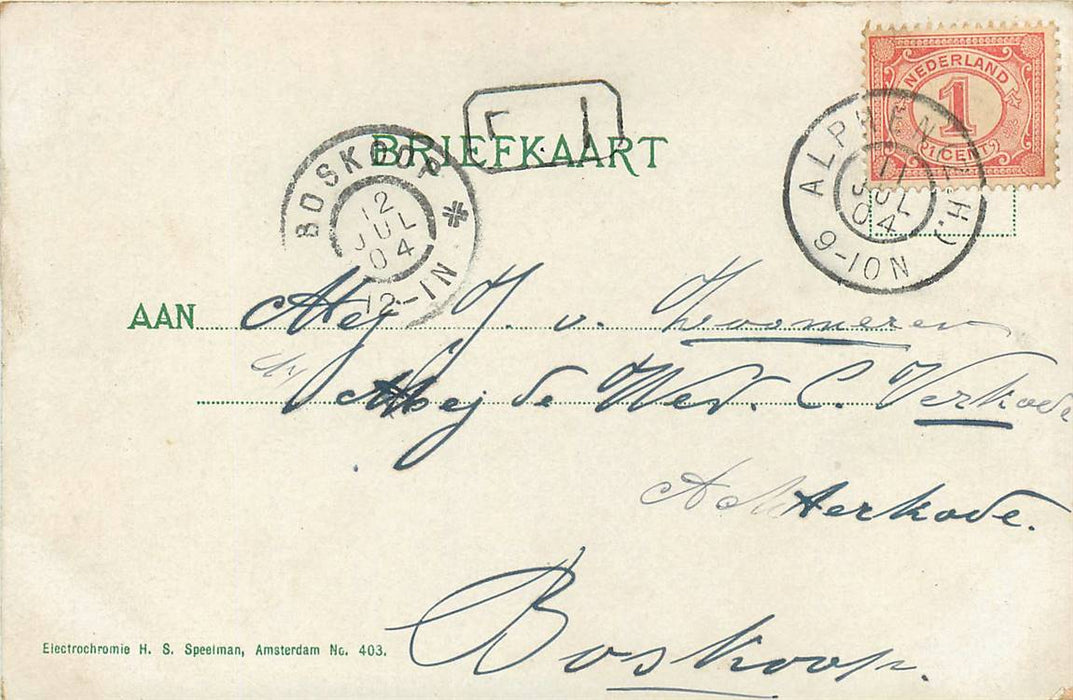 NEDERLAND
1
(1 CENT)
BRIEFKAART
ALPHEN (Z.H.)
11
JUL
04
9-10N
BOSKOOP
12
JUL
04
12-1N
AAN Mej J. v. Zwomeren
Mej de Wed. C. Verkade
Achterkade.
Boskoop.
Electrochromie H. S. Speelman, Amsterdam No. 403.